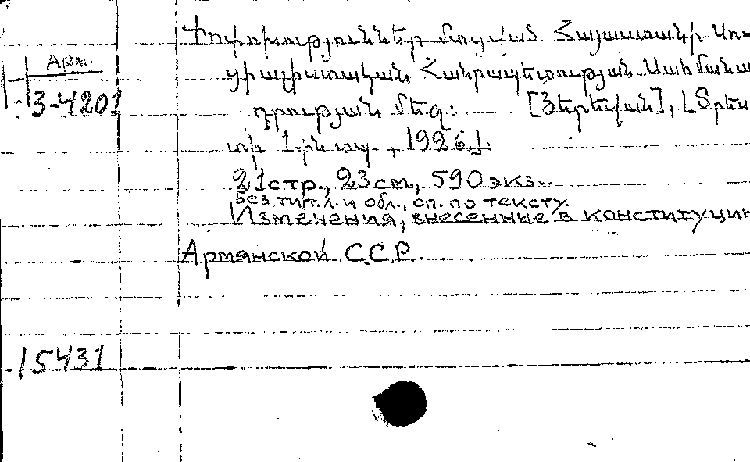 Арм.
3-4201
Փոփոխություններ մուծված Հայաստանի Սո-
ցիալիստական Հանրապետության Սահմանա-
դրության մեջ: [Յերեվան],
տիպ., 1926թ.
21 стр., 23 cm, 590 экз.
Без тит. л. и обл., оп. по тексту.
Изменения, внесенные в конституцию
Армянской С.С.Р.
15431